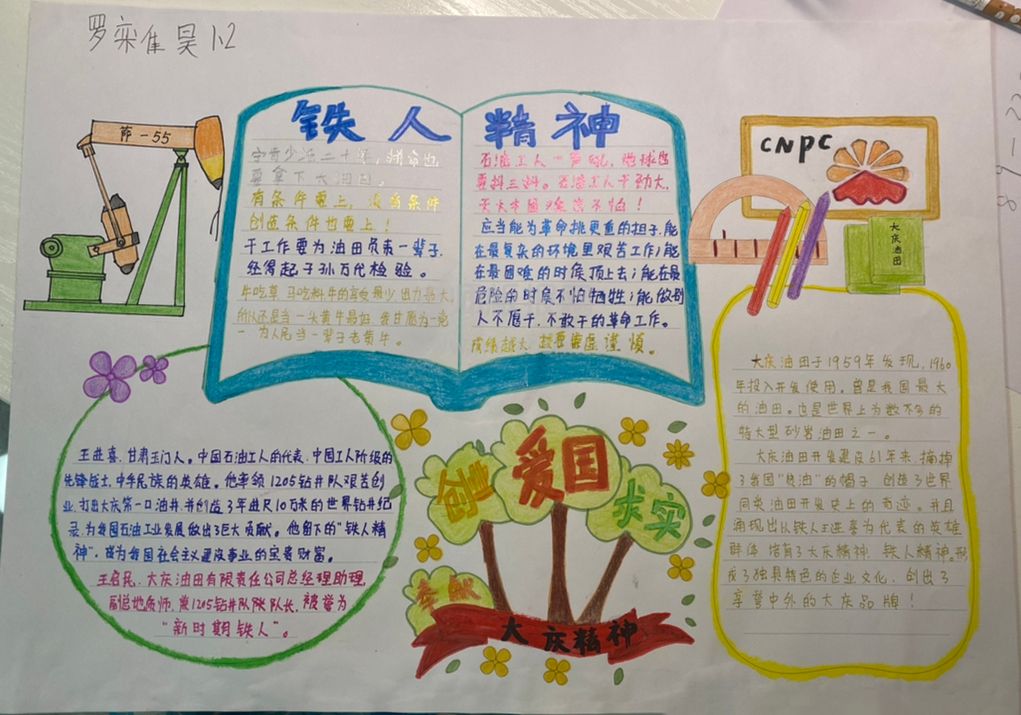 罗奕隹昊 1.2
萨-55
铁人精神
宁肯少活二十年，拼命也
要拿下大油田。
有条件要上，没有条件
创造条件也要上！
干工作要为油田负责一辈子，
经得起子孙万代检验。
牛吃草 马吃料牛的享受最少 出力最大，
所以还是当一头黄牛最好 我甘愿为一党
一为人民当一辈子老黄牛。
石油工人一声吼，地球也
要抖三抖。石油工人干劲大，
天大困难也不怕！
应当能为革命挑更重的担子；能
在最复杂的环境里艰苦工作；能
在最困难的时候顶上去；能在最
危险的时侯不怕牺牲；能做别
人不愿干、不敢干的革命工作。
成绩越大，越要谦虚谨慎。
CNPC
大庆油田
王进喜、甘肃玉门人。中国石油工人的代表、中国工人阶级的
先锋战士、中华民族的英雄。他率领1205钻井队艰苦创
业，打出大庆第一口油井，并创造了年进尺10万米的世界钻井纪
录，为我国石油工业发展做出了巨大贡献。他留下的“铁人精
神”，成为我国社会主义建设事业的宝贵财富。
王启民、大庆油田有限责任公司总经理助理，
副总地质师，
1205钻井队队长，被誉为
“新时期铁人”。
创业
爱国
求实
奉献
大庆精神
大庆油田于1959年发现，1960
年投入开发使用。曾是我国最大
的油田。也是世界上为数不多的
特大型砂岩油田之一。
大庆油田开发建设61年来，摘掉
了我国“贫油”的帽子 创造了世界
同类油田开发史上的奇迹。并且
涌现出以铁人王进喜为代表的英雄
群体 培育了大庆精神、铁人精神。形
成了独具特色的企业文化，创出了
享誉中外的大庆品牌！